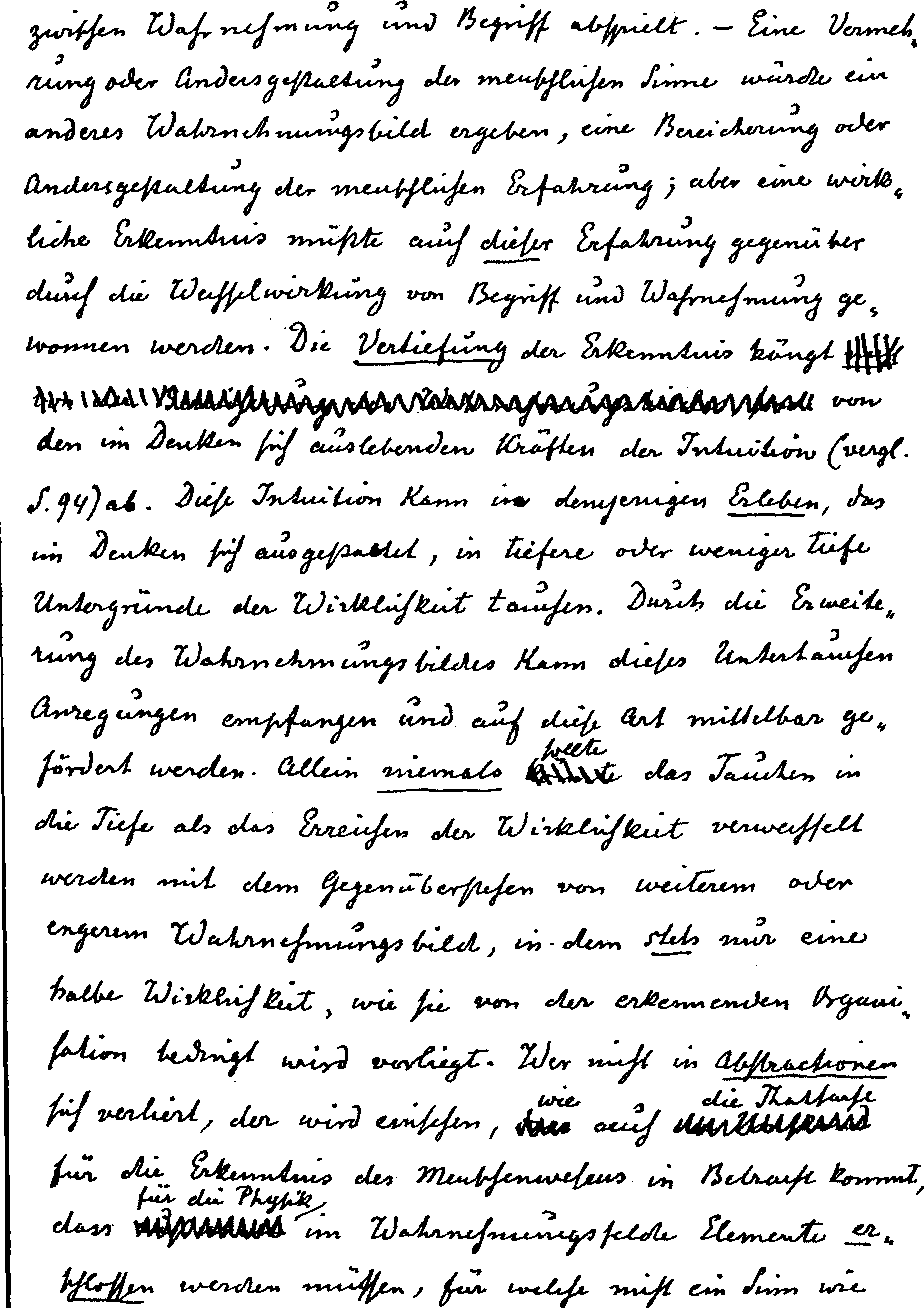 zwischen Wahrnehmung und Begriff abspielt. – Eine Vermeh-
rung oder Andersgestaltung der menschlichen Sinne würde ein
anderes Wahrnehmungsbild ergeben, eine Bereicherung oder
Andersgestaltung der menschlichen Erfahrung; aber eine wirk-
liche Erkenntnis müßte auch dieser Erfahrung gegenüber
durch die Wechselwirkung von Begriff und Wahrnehmung ge-
wonnen werden. Die Vertiefung der Erkenntnis hängt
von
den im Denken sich auslebenden Kräften der Intuition (vergl.
S. 94) ab. Diese Intuition kann in demjenigen Erleben, das
im Denken sich ausgestaltet, in tiefere oder weniger tiefe
Untergründe der Wirklichkeit tauchen. Durch die Erweite-
rung des Wahrnehmungsbildes kann dieses Untertauchen
Anregungen empfangen und auf diese Art mittelbar ge-
fördert werden. Allein niemals sollte das Tauchen in
die Tiefe als das Erreichen der Wirklichkeit verwechselt
werden mit dem Gegenüberstehen von weiterem oder
engerem Wahrnehmungsbild, in dem stets nur eine
halbe Wirklichkeit, wie sie von der erkennenden Organi-
sation bedingt wird vorliegt. Wer nicht in Abstractionen
sich verliert, der wird einsehen, wie auch die Thatsache
für die Erkenntnis des Menschenwesens in Betracht kommt,
dass für die Physik im Wahrnehmungsfelde Elemente er-
schlossen werden müssen, für welche nicht ein Sinn wie